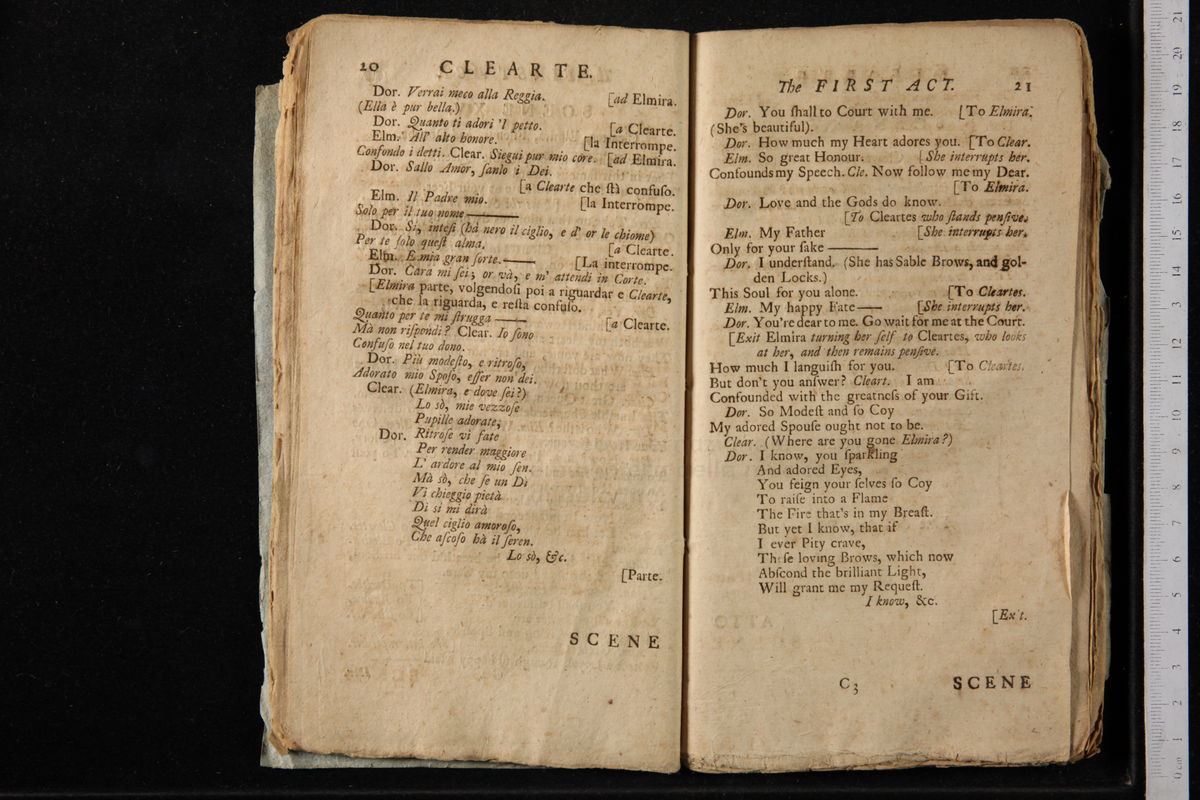 20 CLEARTE.
Dor. Verrai meco alla Reggia. [ad Elmira.
(Ella è pur bella.)
Dor. Quanto ti adori 'l petto. [a Clearte.
Elm. All' alto honore. [la Interrompe.
Confondo i detti. Clear. Siegui pur mio core. [ad Elmira.
Dor. Sallo Amor, ſanlo i Dei.
[a Clearte che ſtà confuſo.
Elm. Il Padre mio. [la Interrompe.
Solo per il tuo nome ———
Dor. Si, inteſi (hà nero il ciglio, e d' or le chiome)
Per te ſolo queſt alma. [a Clearte.
Elm. E mia gran ſorte. —— [La interrompe.
Dor. Cara mi ſei; or và, e m' attendi in Corte.
[Elmira parte, volgendoſi poi a riguardar e Clearte,
che la riguarda, e reſta confuſo.
Quanto per te mi ſtrugga —— [a Clearte.
Mà non riſpondi? Clear. Io ſono
Confuſo nel tuo dono.
Dor. Più modeſto, e ritroſo,
Adorato mio Spoſo, eſſer non dei.
Clear. (Elmira, e dove ſei?)
Lo sò, mie vezzoſe
Pupille adorate,
Dor. Ritroſe vi fate
Per render maggiore
L' ardore al mio ſen.
Mà sò, che ſe un Dì
Vi chieggio pietà
Di si mi dirà
Quel ciglio amoroſo,
Che aſcoſo hà il ſeren.
Lo sò, &c.
[Parte.
SCENE
The FIRST ACT. 21
Dor. You ſhall to Court with me. [To Elmira.
(She's beautiful).
Dor. How much my Heart adores you. [To Clear.
Elm. So great Honour. [She interrupts her.
Confounds my Speech. Cle. Now follow me my Dear.
[To Elmira.
Dor. Love and the Gods do know.
[To Cleartes who ſtands penſive.
Elm. My Father [She interrupts her.
Only for your ſake ———
Dor. I underſtand. (She has Sable Brows, and gol-
den Locks.)
This Soul for you alone. [To Cleartes.
Elm. My happy Fate —— [She interrupts her.
Dor. You're dear to me. Go wait for me at the Court.
[Exit Elmira turning her ſelf to Cleartes, who looks
at her, and then remains penſive.
How much I languiſh for you. [To Cleartes.
But don't you anſwer? Cleart. I am
Confounded with the greatneſs of your Gift.
Dor. So Modeſt and ſo Coy
My adored Spouſe ought not to be.
Clear. (Where are you gone Elmira?)
Dor. I know, you ſparkling
And adored Eyes,
You feign your ſelves ſo Coy
To raiſe into a Flame
The Fire that's in my Breaſt.
But yet I know, that if
I ever Pity crave,
Theſe loving Brows, which now
Abſcond the brilliant Light,
Will grant me my Requeſt.
I know, &c.
[Exit.
C3 SCENE
0 cm 1 2 3 4 5 6 7 8 9 10 11 12 13 14 15 16 17 18 19 20 21